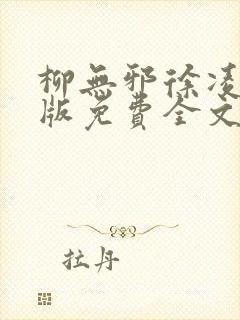 柳無邪徐凌
版免費全文
拉丹